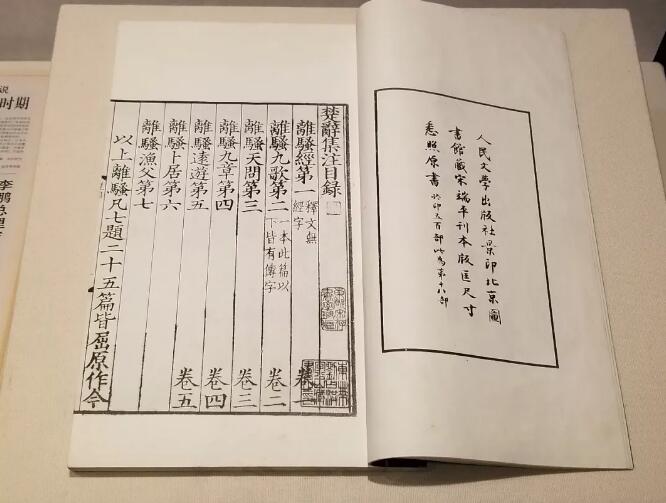 人民文學出版社景印北京圖
書館藏宋端平刊本版匡尺寸
悉照原書 印五百部此為第十八部
楚辭集注目錄
離騷經第一 釋文無經字 卷一
離騷九歌第二 一本此篇以下皆有傳字 卷二
離騷天問第三 卷三
離騷九章第四 卷四
離騷遠遊第五 卷五
離騷卜居第六
離騷漁父第七
以上離騷凡七題二十五篇皆屈原作今
说
时期
李鹏总理